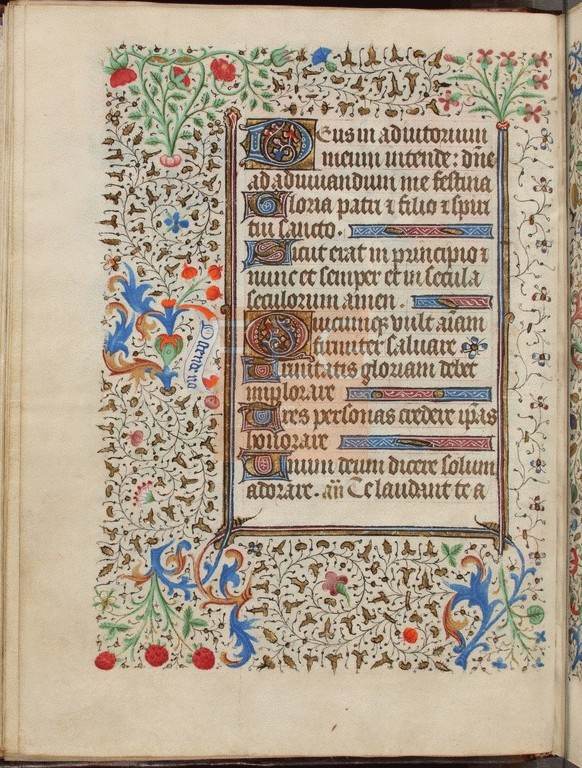 Deus in adiutorium
meum intende: dñe
ad adiuvandum me festina
Gloria patri ⁊ filio ⁊ spui
tui sancto.
Sicut erat in principio ⁊
nunc et semper et in secula
seculorum amen.
Quicumqꝫ vult aīam
firmiter salvare
Trinitatis gloriam debet
implorare
Tres personas credere ipas
honorare
Unum deum dicere solum
adorare. añ Te laudant te a